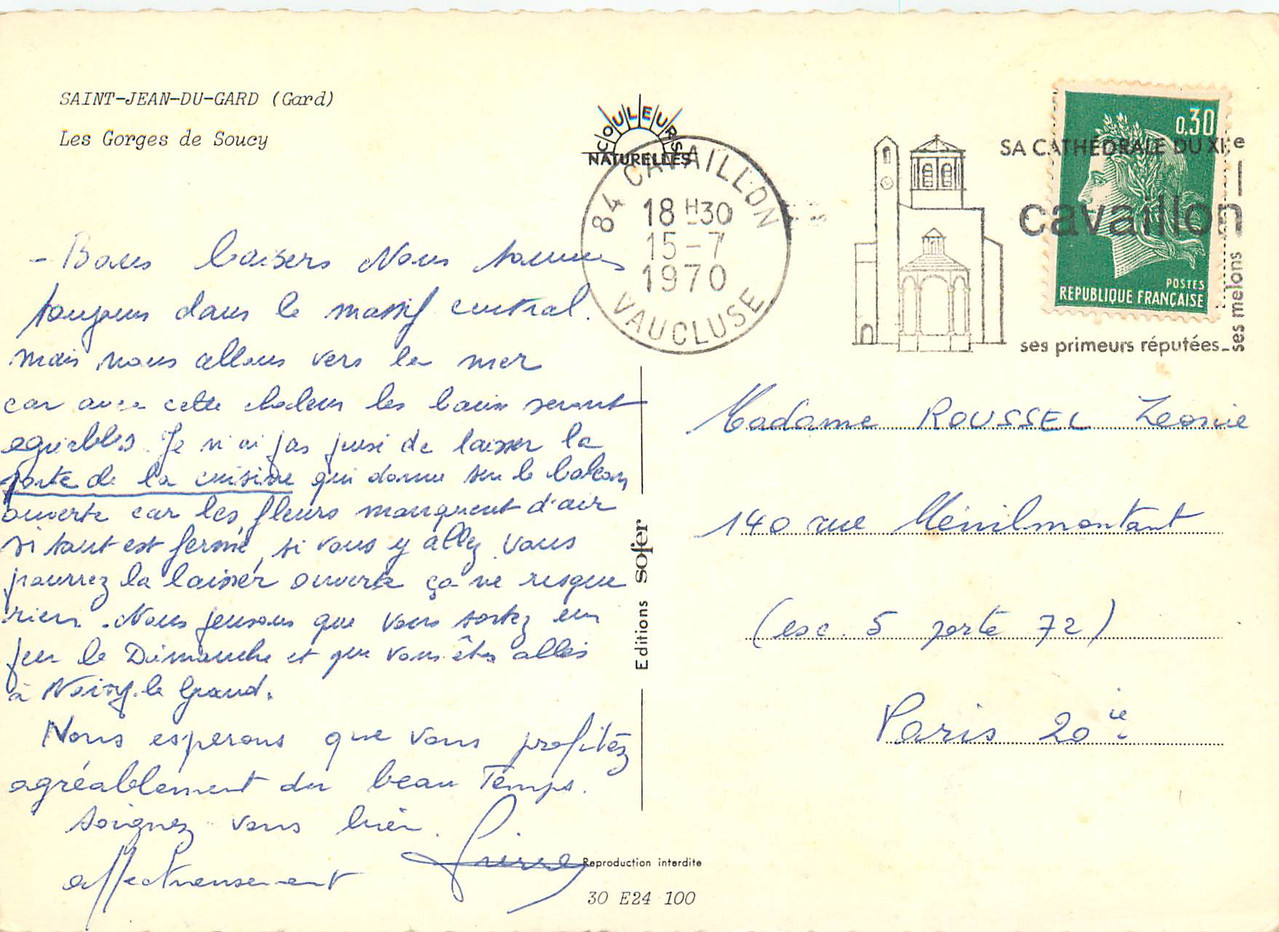 SAINT-JEAN-DU-GARD (Gard)
Les Gorges de Soucy
COULEURS
NATURELLES
84 CAVAILLON
18 H30
15-7
1970
VAUCLUSE
SA CATHÉDRALE DU XIIe
cavaillon
ses primeurs réputées_
ses melons
0,30
POSTES
REPUBLIQUE FRANÇAISE
- Bons baisers Nous sommes
toujours dans le massif central.
mais nous allons vers la mer
car avec cette chaleur les bains seront
agréables. Je n'ai pas pensé de laisser la
porte de la cuisine qui donne sur le balcon
ouverte car les fleurs manquent d'air
si tout est fermé, si vous y allez vous
pourrez la laisser ouverte ça ne risque
rien. Nous pensons que vous sortez un
peu le Dimanche et que vous êtes allés
à Noisy-le Grand.
Nous esperons que vous profitez
agréablement du beau Temps.
Soignez vous bien.
affectueusement
Pierre
Madame ROUSSEL Leonie
140 rue Ménilmontant
(esc. 5 porte 72)
Paris 20ie
Editions sofer
Reproduction interdite
30 E24 100